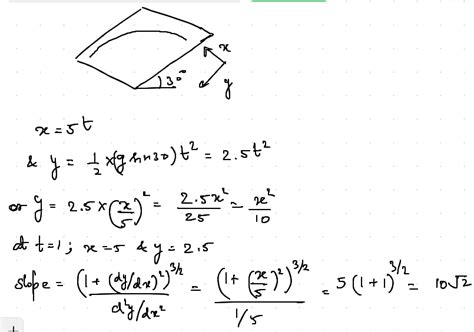 x
30°
y
x = 5t
& y = 1/2 × (g sin 30) t² = 2.5t²
or y = 2.5 × (x/5)² = 2.5x²/25 = x²/10
at t=1; x = 5 & y = 2.5
slope = (1 + (dy/dx)²)^3/2 / d²y/dx² = (1 + (x/5)²)^3/2 / 1/5 = 5(1+1)^3/2 = 10√2